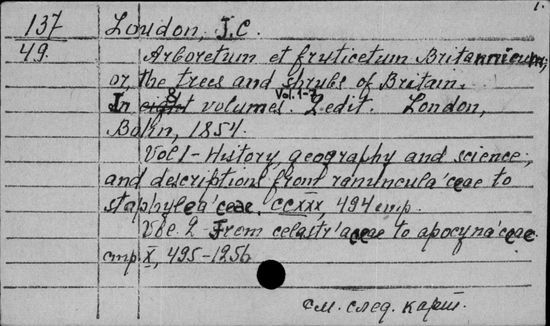 1.
137 Loudon, J.C.
49. Arboretum et fruticetum Britannicum;
or, the trees and shrubs of Britain.
In eight 8 volumes. Vol. 1-7 2 edit. London,
Bohn, 1854.
Vol 1 - History, geography and science;
and descriptions from ranuncula'ceae to
staphylea'ceae. CCXXX, 494 стр.
Vol. 2 - From celastra'ceae to apocyna'ceae
стр. X, 495-1256
см. след. карт.